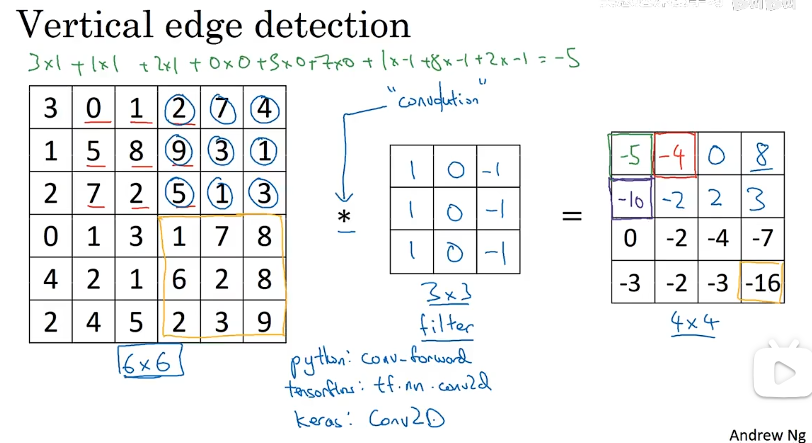 Vertical edge detection
3×1 + 1×1 + 2×1 + 0×0 + 5×0 + 7×0 + 1×-1 + 8×-1 + 2×-1 = -5
"convolution"
3 0 1 2 7 4
1 5 8 9 3 1
2 7 2 5 1 3
0 1 3 1 7 8
4 2 1 6 2 8
2 4 5 2 3 9
6×6
*
1 0 -1
1 0 -1
1 0 -1
3×3
filter
=
-5 -4 0 8
-10 -2 2 3
0 -2 -4 -7
-3 -2 -3 -16
4×4
python: conv-forward
tensorflow: tf.nn.conv2d
keras: Conv2D
Andrew Ng